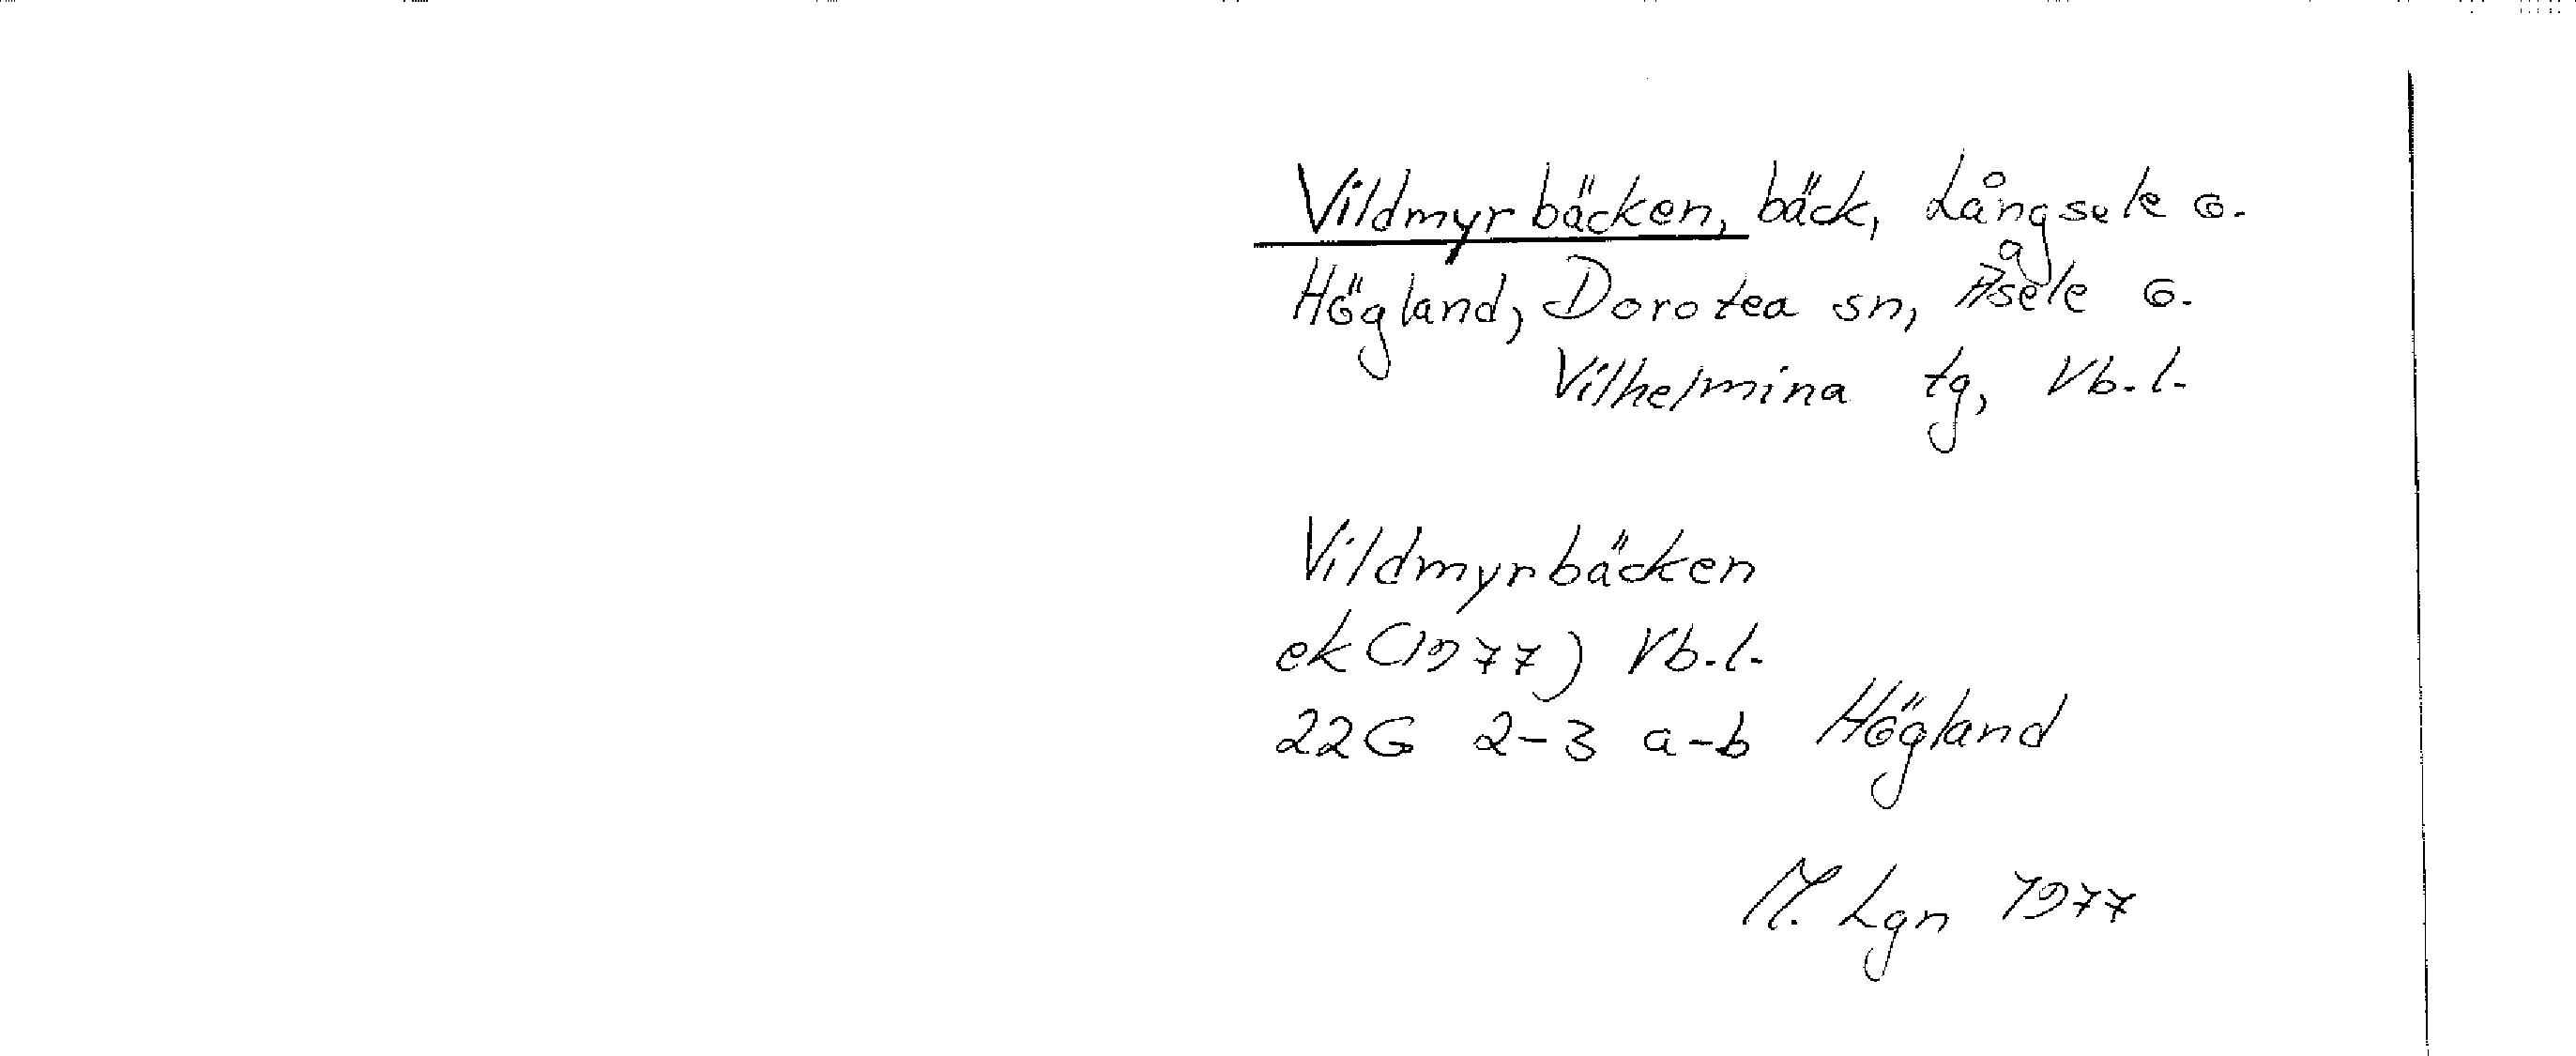 Vildmyrbäcken, bäck, Långsele o.
Högland, Dorotea sn, Åsele o.
Vilhelmina tg, Vb.l.
Vildmyrbäcken
ek (1977) Vb.l.
22G 2-3 a-b Högland
M. Lgn 1977